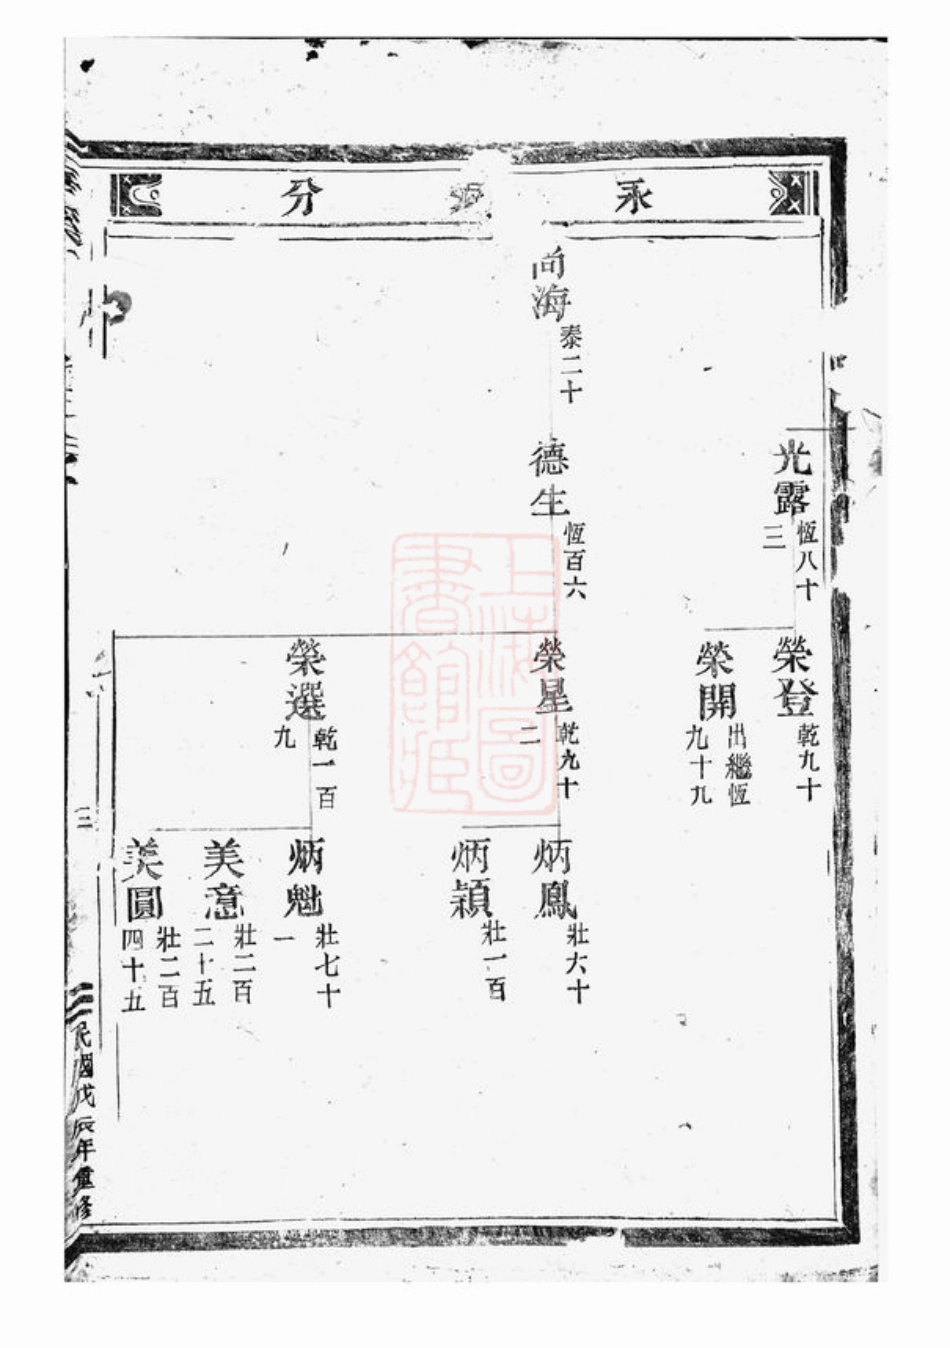 永派分
尚海
泰二十
光露
恆八十
三
德生
恆百六
榮登
乾九十
榮開
出繼恆
九十九
榮星
乾九十
二
榮選
乾一百
九
炳鳳
壯六十
炳穎
壯一百
炳魁
壯七十
一
美意
壯二百
二十五
美圓
壯二百
四十五
三
民國戊辰年重修
上海圖書館藏